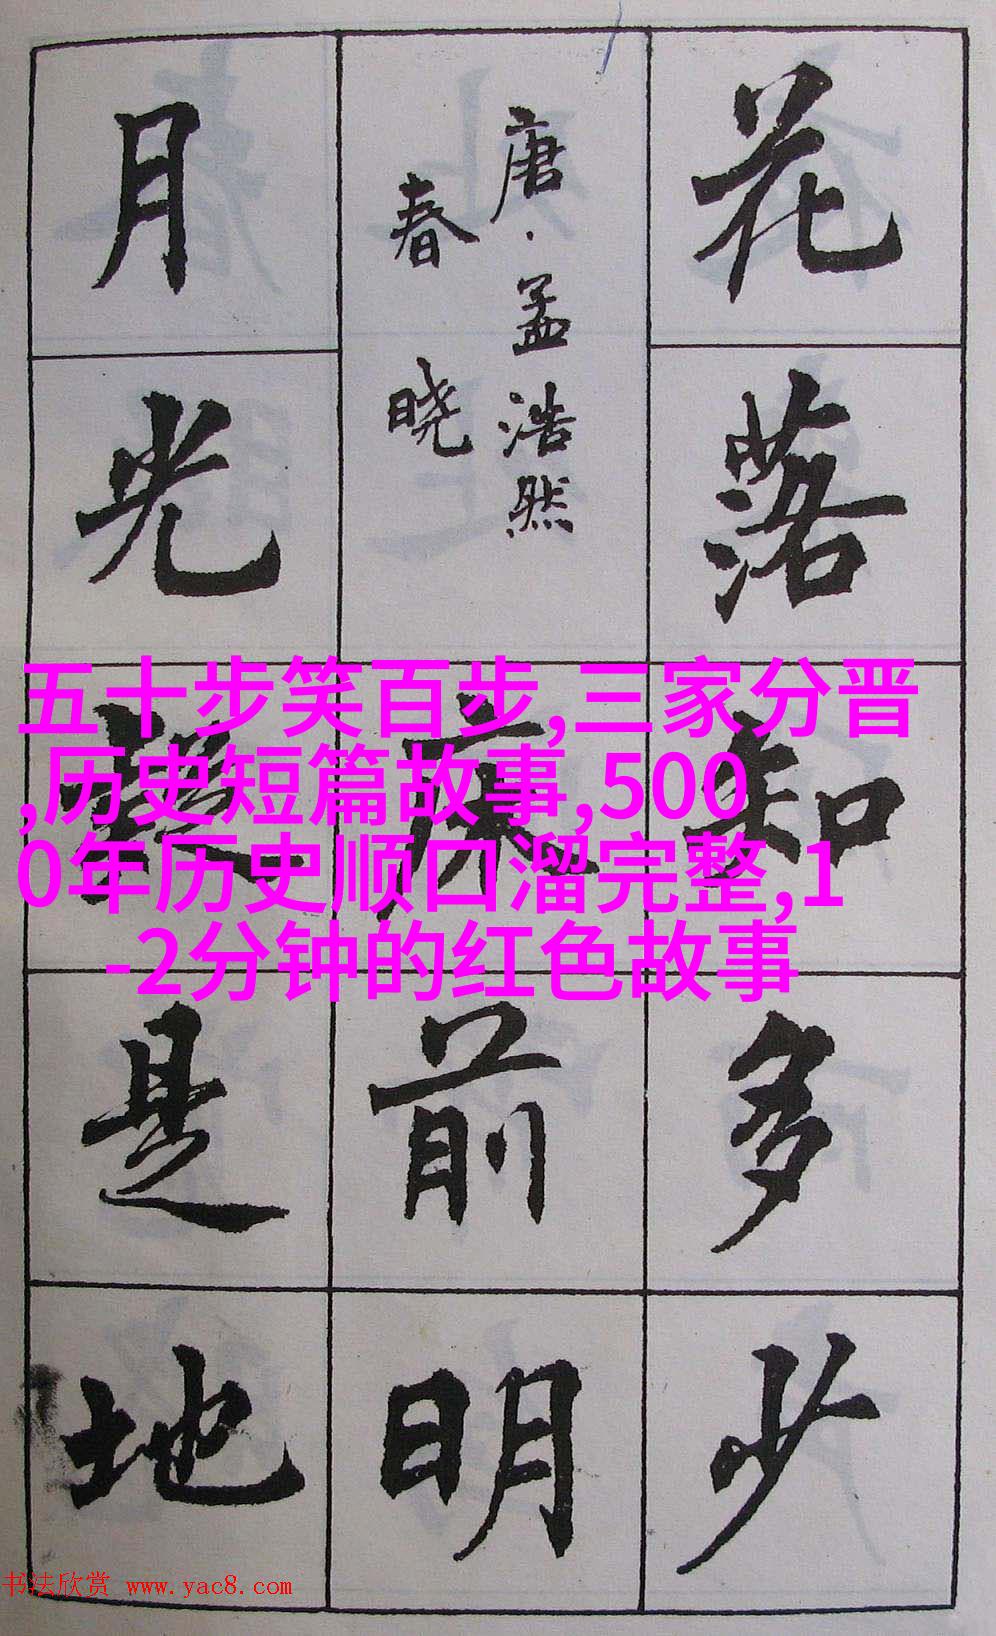 花落知多少
唐·孟浩然
春晓
床前明
月光疑是地
五十步笑百步,三家分晋
,历史短篇故事,500
0年历史顺口溜完整,1
-2分钟的红色故事
书法欣赏 www.yac8.com